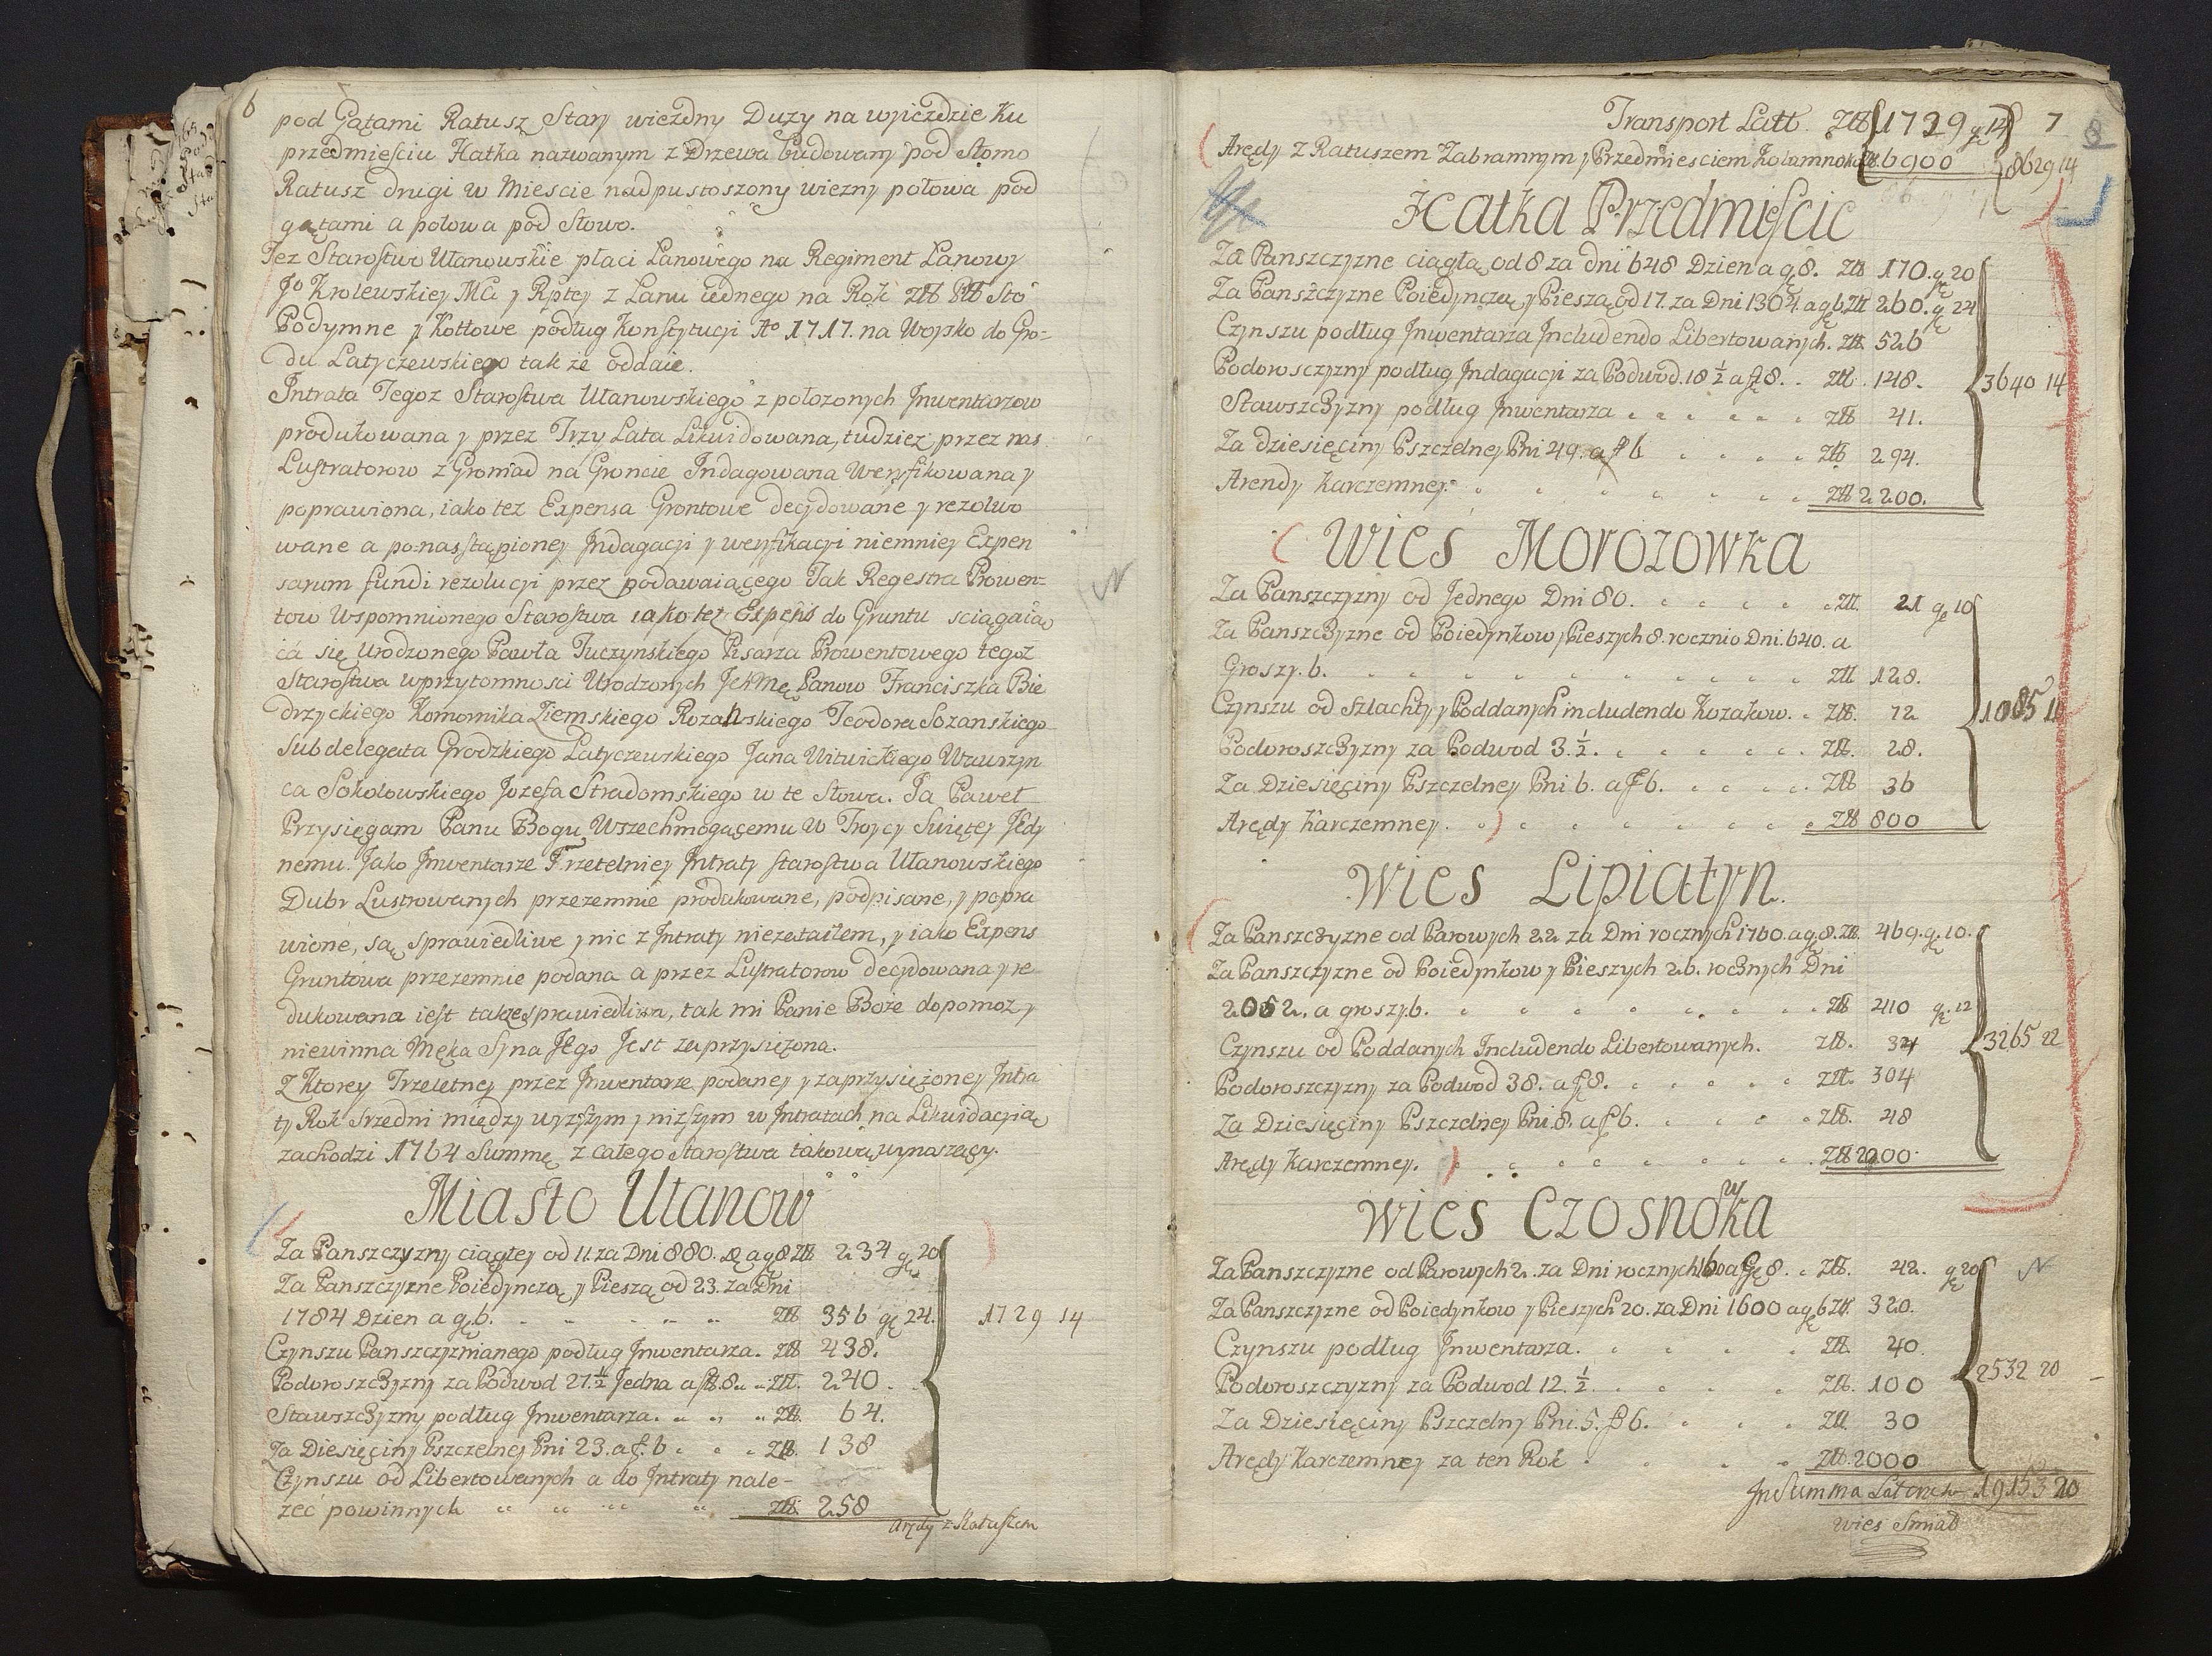 6
pod Gątami Ratusz Stary wiezdny Duzy na wyieździe Ku
przedmieściu Hatka nazwanym z Drzewa budowany pod Słomo
Ratusz drugi w Mieście nadpustoszony wiezny połowa pod
gątami a połowa pod Słowo.
Tez Starostwo Ułanowskie płaci Łanowego na Regiment Łanowy
Jo Krolewskiey Mci y Rptey z Łanu iednego na Rok Złł Płł Sto
Podymne y Kotłowe podług Konstytucji Ao 1717. na Woysko do Gro=
du Latyczewskiego tak ze oddaie.
Intrata Tegoz Starostwa Ułanowskiego z połozonych Jnwentarzow
produkowana y przez Trzy Lata Likwidowana, tudziez przez nas
Lustratorow z Gromad na Groncie Indagowana Weryfikowana y
poprawiona, iako tez Expensa Grontowe decydowane y rezolwo
wane a po nasstąpioney Jndagacyi y weryfikacyi niemniey Expen
sarum fundi rezolucyi przez podawaiącego Jak Regestra Prowen=
tow Wspomnionego Starostwa iako też Expens do Gruntu sciągaią
ca się Urodzonego Pawła Tuczynskiego Pisarza Prowentowego tegoz
Starostwa w przytomnosci Urodzonych Jchmę Panow Franciszka Bie
drzyckiego Komornika Ziemskiego Rozańskiego Teodora Sozanskiego
Subdelegata Grodzkiego Latyczewskiego Jana Witwickiego Wawrzyn
ca Sokolowskiego Jozefa Stradomskiego w te Słowa. Ja Paweł
Przysięgam Panu Bogu Wszechmogącemu W Troycy Swiętey Jedy
nemu. Jako Jnwentarze Trzetelniey Jntraty starostwa Ułanowskiego
Dubr Lustrowanych przezemnie produkowane, podpisane, y popra
wione, są sprawiedliwe y nic z Jntraty niezataiłem, y iako Expens
Gruntowa przezemnie podana a przez Lustratorow decydowana y re
dukowana iest takze sprawiedliwa, tak mi Panie Boże dopomoz y
niewinna Męka Syna Jego Jest zaprzysiężona.
Z Ktorey Trzeletney przez Jnwentarze podaney y zaprzysiężoney Jntra
ty Rok Srzedni między wyższym y niższym w Jntratach na Likwidacyią
zachodzi 1764 Summę z całego Starostwa takową wynaszący.
Miasto Ułanow
Za Panszczyzny ciągłey od 11. za Dni 880. a gę 8 Złł 234 gę 20
Za Panszczyzne Poiedynczą y Pieszą od 23. za Dni
1784 Dzien a gę 6. Złł 356 gę 24.
Czynszu Panszczyznianego podług Jnwentarza. Złł 438.
Podoroszczyzny za Podwod 27.½ Jedna a ff 8. Złł. 240.
Stawszczyzny podług Jnwentarza. Złł. 64.
Za Diesięciny Pszczelney Pni 23. a f. 6 Złł. 138
Czynszu od Libertowanych a do Jntraty nale-
zeć powinnych Złł. 258
1729 14
Arędy z Ratuszem
Transport Latt. Złł 1729 gę 14 7 8
Arędy z Ratuszem Zabramnym y Przedmiesciem Złł. 6900 8629 14
Hatka Przedmiescie
Za Panszczyzne ciągłą od 8 za dni 648 Dzien a g 8. Złł 170. gę 20
Za Panszczyzne Poiedynczą y Pieszą od 17. za Dni 1304. a gę 6 Złł 260. gę 24
Czynszu podług Jnwentarza Jncludendo Libertowanych. Złł. 526
Podorosczyzny podług Jndagacyi za Podwod. 18½ a ff 8. Złł. 148.
Stawszczyzny podług Jnwentarza Złł 41.
Za dziesięciny Pszczelney Pni 49. a ff 6 Złł 294.
Arendy Karczemney. Złł 2200.
3640 14
Wies Morozowka
Za Panszczyzny od Jednego Dni 80. Złł. 21 gę 10
Za Panszczyzne od Poiedynkow y Pieszych 8. rocznio Dni. 640. a
Groszy. 6. Złł 128.
Czynszu od Szlachty y Poddanych includendo Kozakow. Złł. 72
Podoroszczyzny za Podwod 3.½. Złł. 28.
Za Dziesięciny Pszczelney Pni 6. a ff 6. Złł 36
Arędy Karczemney. Złł 800
1085 10
Wies Lipiatyn.
Za Panszczyzne od Parowych 22 za Dni rocznych 1760. a g 8. Złł. 469. gę 10.
Za Panszczyzne od Poiedynkow y Pieszych 26. rocznych Dni
2052. a groszy 6. Złł 410 gę. 12
Czynszu od Poddanych Includendo Libertowanych. Złł. 34
Podoroszczyzny za Podwod 38. a ff 8. Złł. 304
Za Dziesięciny Pszczelney Pni. 8. a ff 6. Złł. 48
Arędy Karczemney. Złł 2000.
3265 22
Wies Czosnowka
Za Panszczyzne od Parowych 2. za Dni rocznych 160 a Gę 8. Złł. 42. gę 20
Za Panszczyzne od Poiedynkow y Pieszych 20. za Dni 1600 a gę 6 Złł. 320.
Czynszu podług Jnwentarza. Złł. 40.
Podoroszczyzny za Podwod 12.½. Złł. 100
Za Dziesięciny Pszczelny Pni. 5. ff 6. Złł 30
Arędy Karczemney za ten Rok Złł. 2000
2532 20
Jn Summa Laterum 19153 20
Wies Smiał